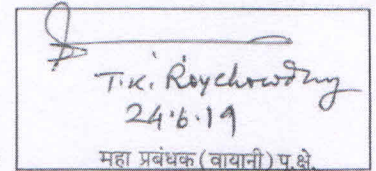 T.K. Roychowdhury
24.6.19
महा प्रबंधक (वायानी) पू.क्षे.